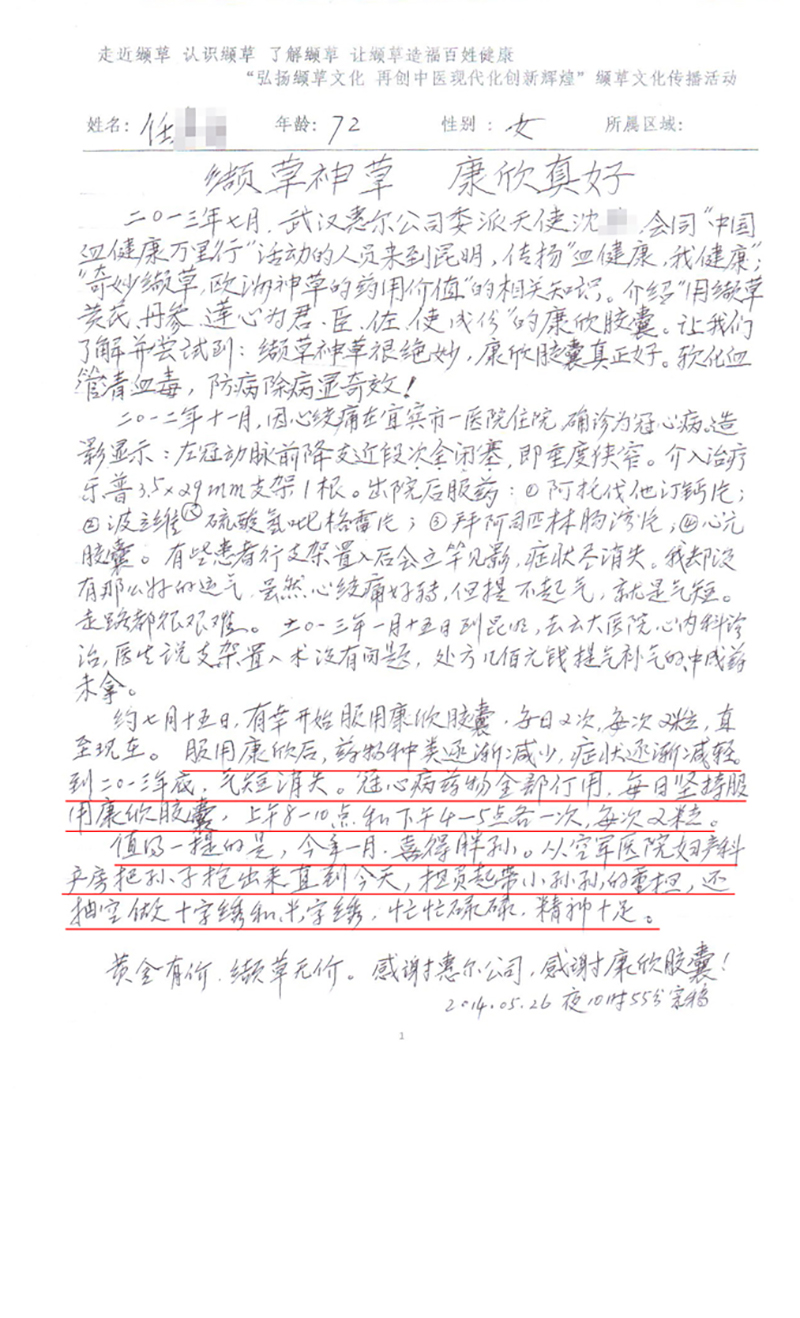 走近缬草 认识缬草 了解缬草 让缬草造福百姓健康
“弘扬缬草文化 再创中医现代化创新辉煌” 缬草文化传播活动
姓名: 任 年龄: 72 性别 : 女 所属区域:
缬草神草 康欣真好
二〇一三年七月，武汉惠尔公司委派天使沈 会同“中国
血健康万里行”活动的人员来到昆明，传扬“血健康，我健康”；
“奇妙缬草，欧洲神草的药用价值”的相关知识。介绍“用缬草
黄芪、丹参、莲心为君、臣、佐、使成份”的康欣胶囊。让我们
了解并尝试到：缬草神草很绝妙，康欣胶囊真正好。软化血
管清血毒，防病除病显奇效！
二〇一二年十一月，因心绞痛在宜宾市一医院住院，确诊为冠心病，造
影显示：左冠动脉前降支近段次全闭塞，即重度狭窄。介入治疗
乐普3.5×29mm支架1根。出院后服药：①阿托伐他汀钙片；
②波立维 硫酸氢吡格雷片；③拜阿司匹林肠溶片；④心元
胶囊。有些患者行支架置入后会立竿见影，症状尽消失。我却没
有那么好的运气，虽然心绞痛好转，但提不起气，就是气短。
走路都很艰难。二〇一三年一月十五日到昆明，去云大医院心内科诊
治，医生说支架置入术没有问题，处方几佰元钱提气补气的中成药
未拿。
约七月十五日，有幸开始服用康欣胶囊，每日2次，每次2粒，直
至现在。服用康欣后，药物种类逐渐减少，症状逐渐减轻。
到二〇一三年底，气短消失。冠心病药物全部停用，每日坚持服
用康欣胶囊，上午8—10点和下午4—5点各一次，每次2粒。
值得一提的是，今年一月，喜得胖孙。从空军医院妇产科
产房把孙子抱出来直到今天，担负起带小孙孙的重担，还
抽空做十字绣和半字绣，忙忙碌碌，精神十足。
黄金有价，缬草无价。感谢惠尔公司，感谢康欣胶囊！
2014.05.26 夜10时55分完稿
1